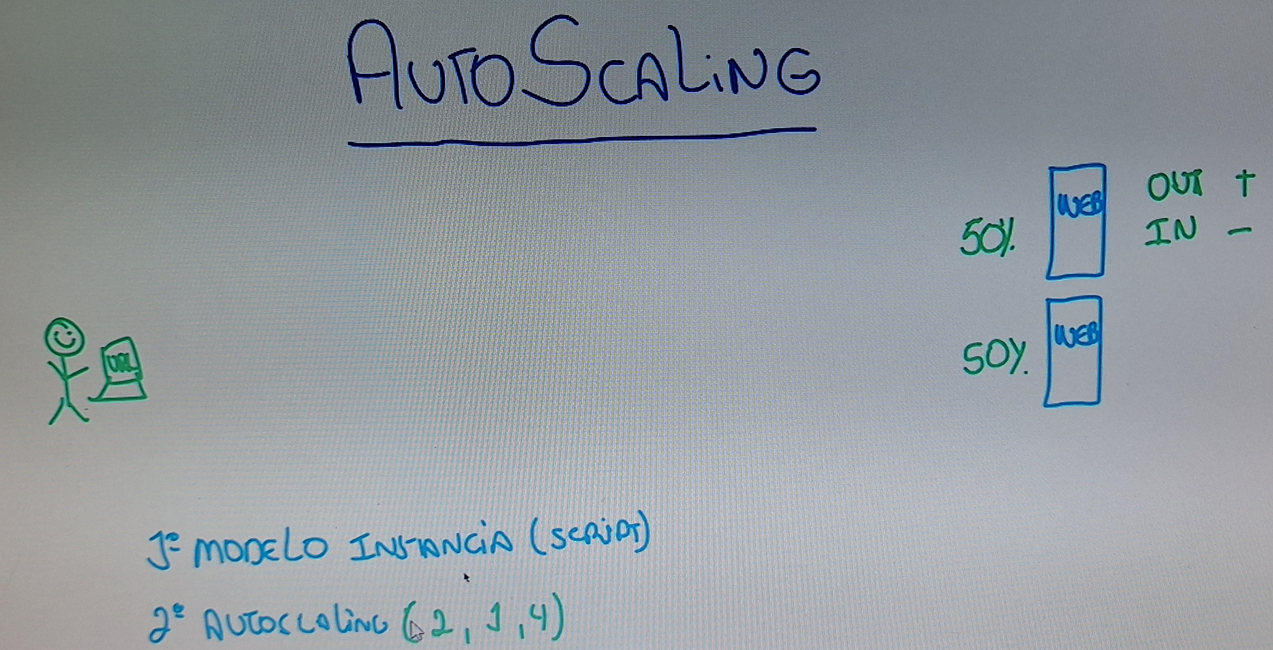 AUTOSCALING
WEB OUT +
50% IN -
WEB
50%
URL
1º MODELO INSTANCIA (SCRIPT)
2º AUTOSCALING (2, 1, 4)